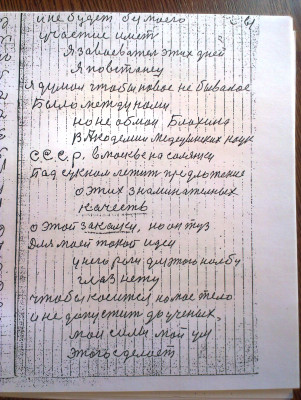 и не будет бы моего
участие имет
Я забаеватся этих дней
Я повстану
я думал чтобы новое не бывалое
было между нами
но не обман Блохина
В Академии Медецинских наук
С.С.С.р. в москве на солянки
Под сукном лежит предложение
о этих знаминательных
качеств
о этой закалки, но он туз
Для моей такой идеи
у него роги для этого на лбу
глаз нету
чтобы косится на мое тело
и не допустит до ученых
мои силы мой ум
этого сделает